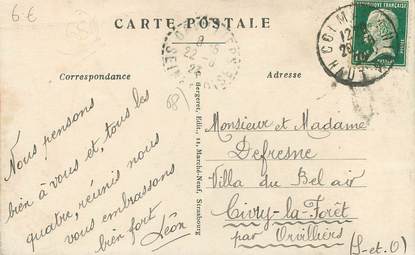 6 €
CARTE POSTALE
RÉPUBLIQUE FRANÇAISE
COLMAR
Correspondance
Adresse
68
Bergeret, Edit., 11, Marché-Neuf, Strasbourg
Nous pensons
bien à vous et, tous les
quatre, réunis nous
vous embrassons
bien fort
Léon
Monsieur et Madame
Defresne
Villa du Bel air
Civry-la-Forêt
par Orvilliers
(S-et-O)